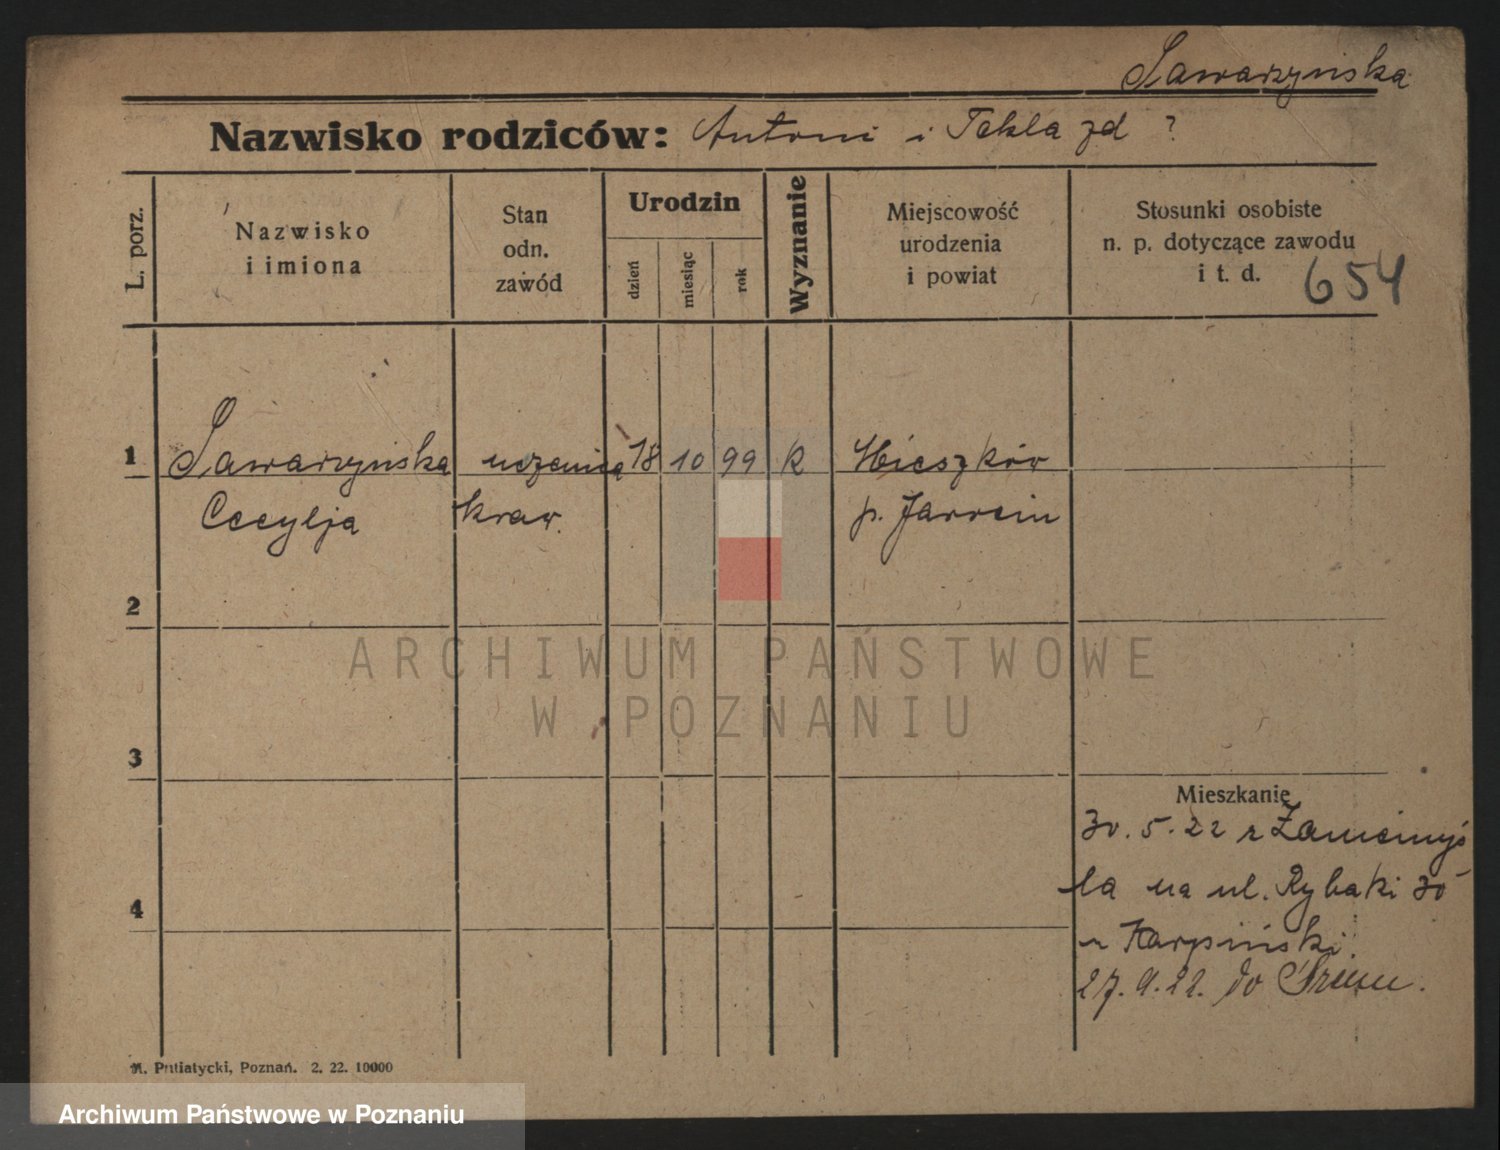 Sawarzyńska
Nazwisko rodziców: Antoni i Tekla zd ?
L. porz.
Nazwisko
i imiona
Stan
odn.
zawód
Urodzin
dzień
miesiąc
rok
Wyznanie
Miejscowość
urodzenia
i powiat
Stosunki osobiste
n. p. dotyczące zawodu
i t. d. 654
1 Sawarzyńska uczenica 18 10 99 k Mieszków
Cecylja kraw. p. Jarocin
2
ARCHIWUM PAŃSTWOWE
W POZNANIU
3
Mieszkanie
30.5.22 z Zaniemyś
la na ul. Rybaki 30
u Karpiński.
27.9.22. do Śremu.
4
M. Putiatycki, Poznań. 2. 22. 10000
Archiwum Państwowe w Poznaniu